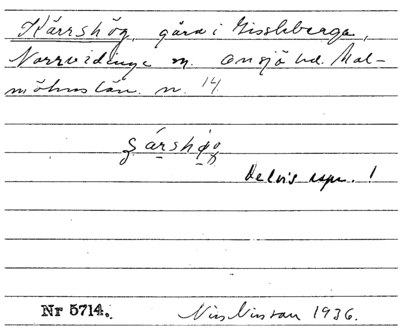 Kärrshög, gård i Gissleberga,
Norrvidinge sn. Onsjö hd. Mal-
möhus län. n. 14.
Delvis uspr. !
Nr 5714. Nils Nilsson 1936.